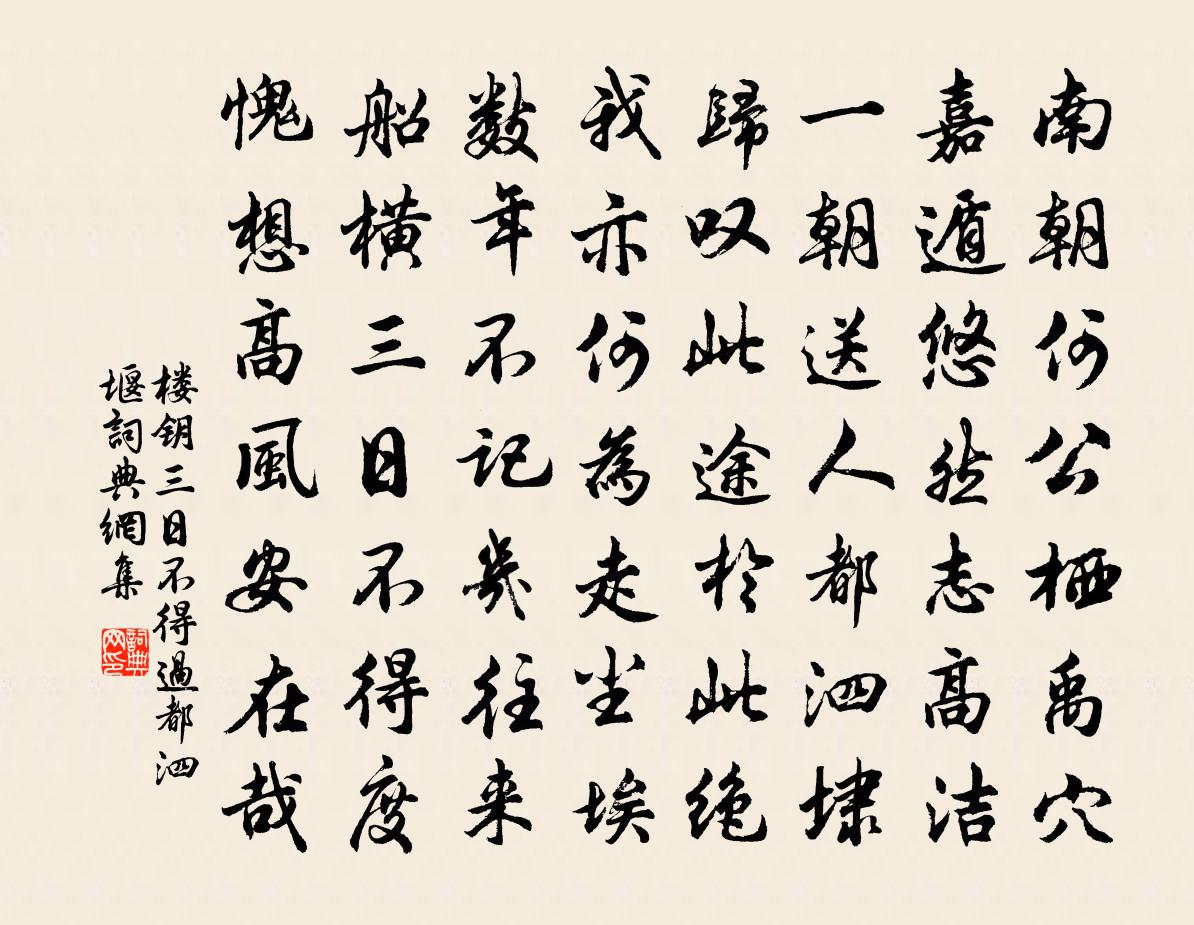 南朝何公栖禹穴
嘉遁悠然志高洁
一朝送人都泗埭
歸叹此途於此绝
我亦何為走尘埃
数年不记幾往来
船横三日不得度
愧想高風安在哉
楼钥三日不得過都泗
堰詞典網集
詞典网印